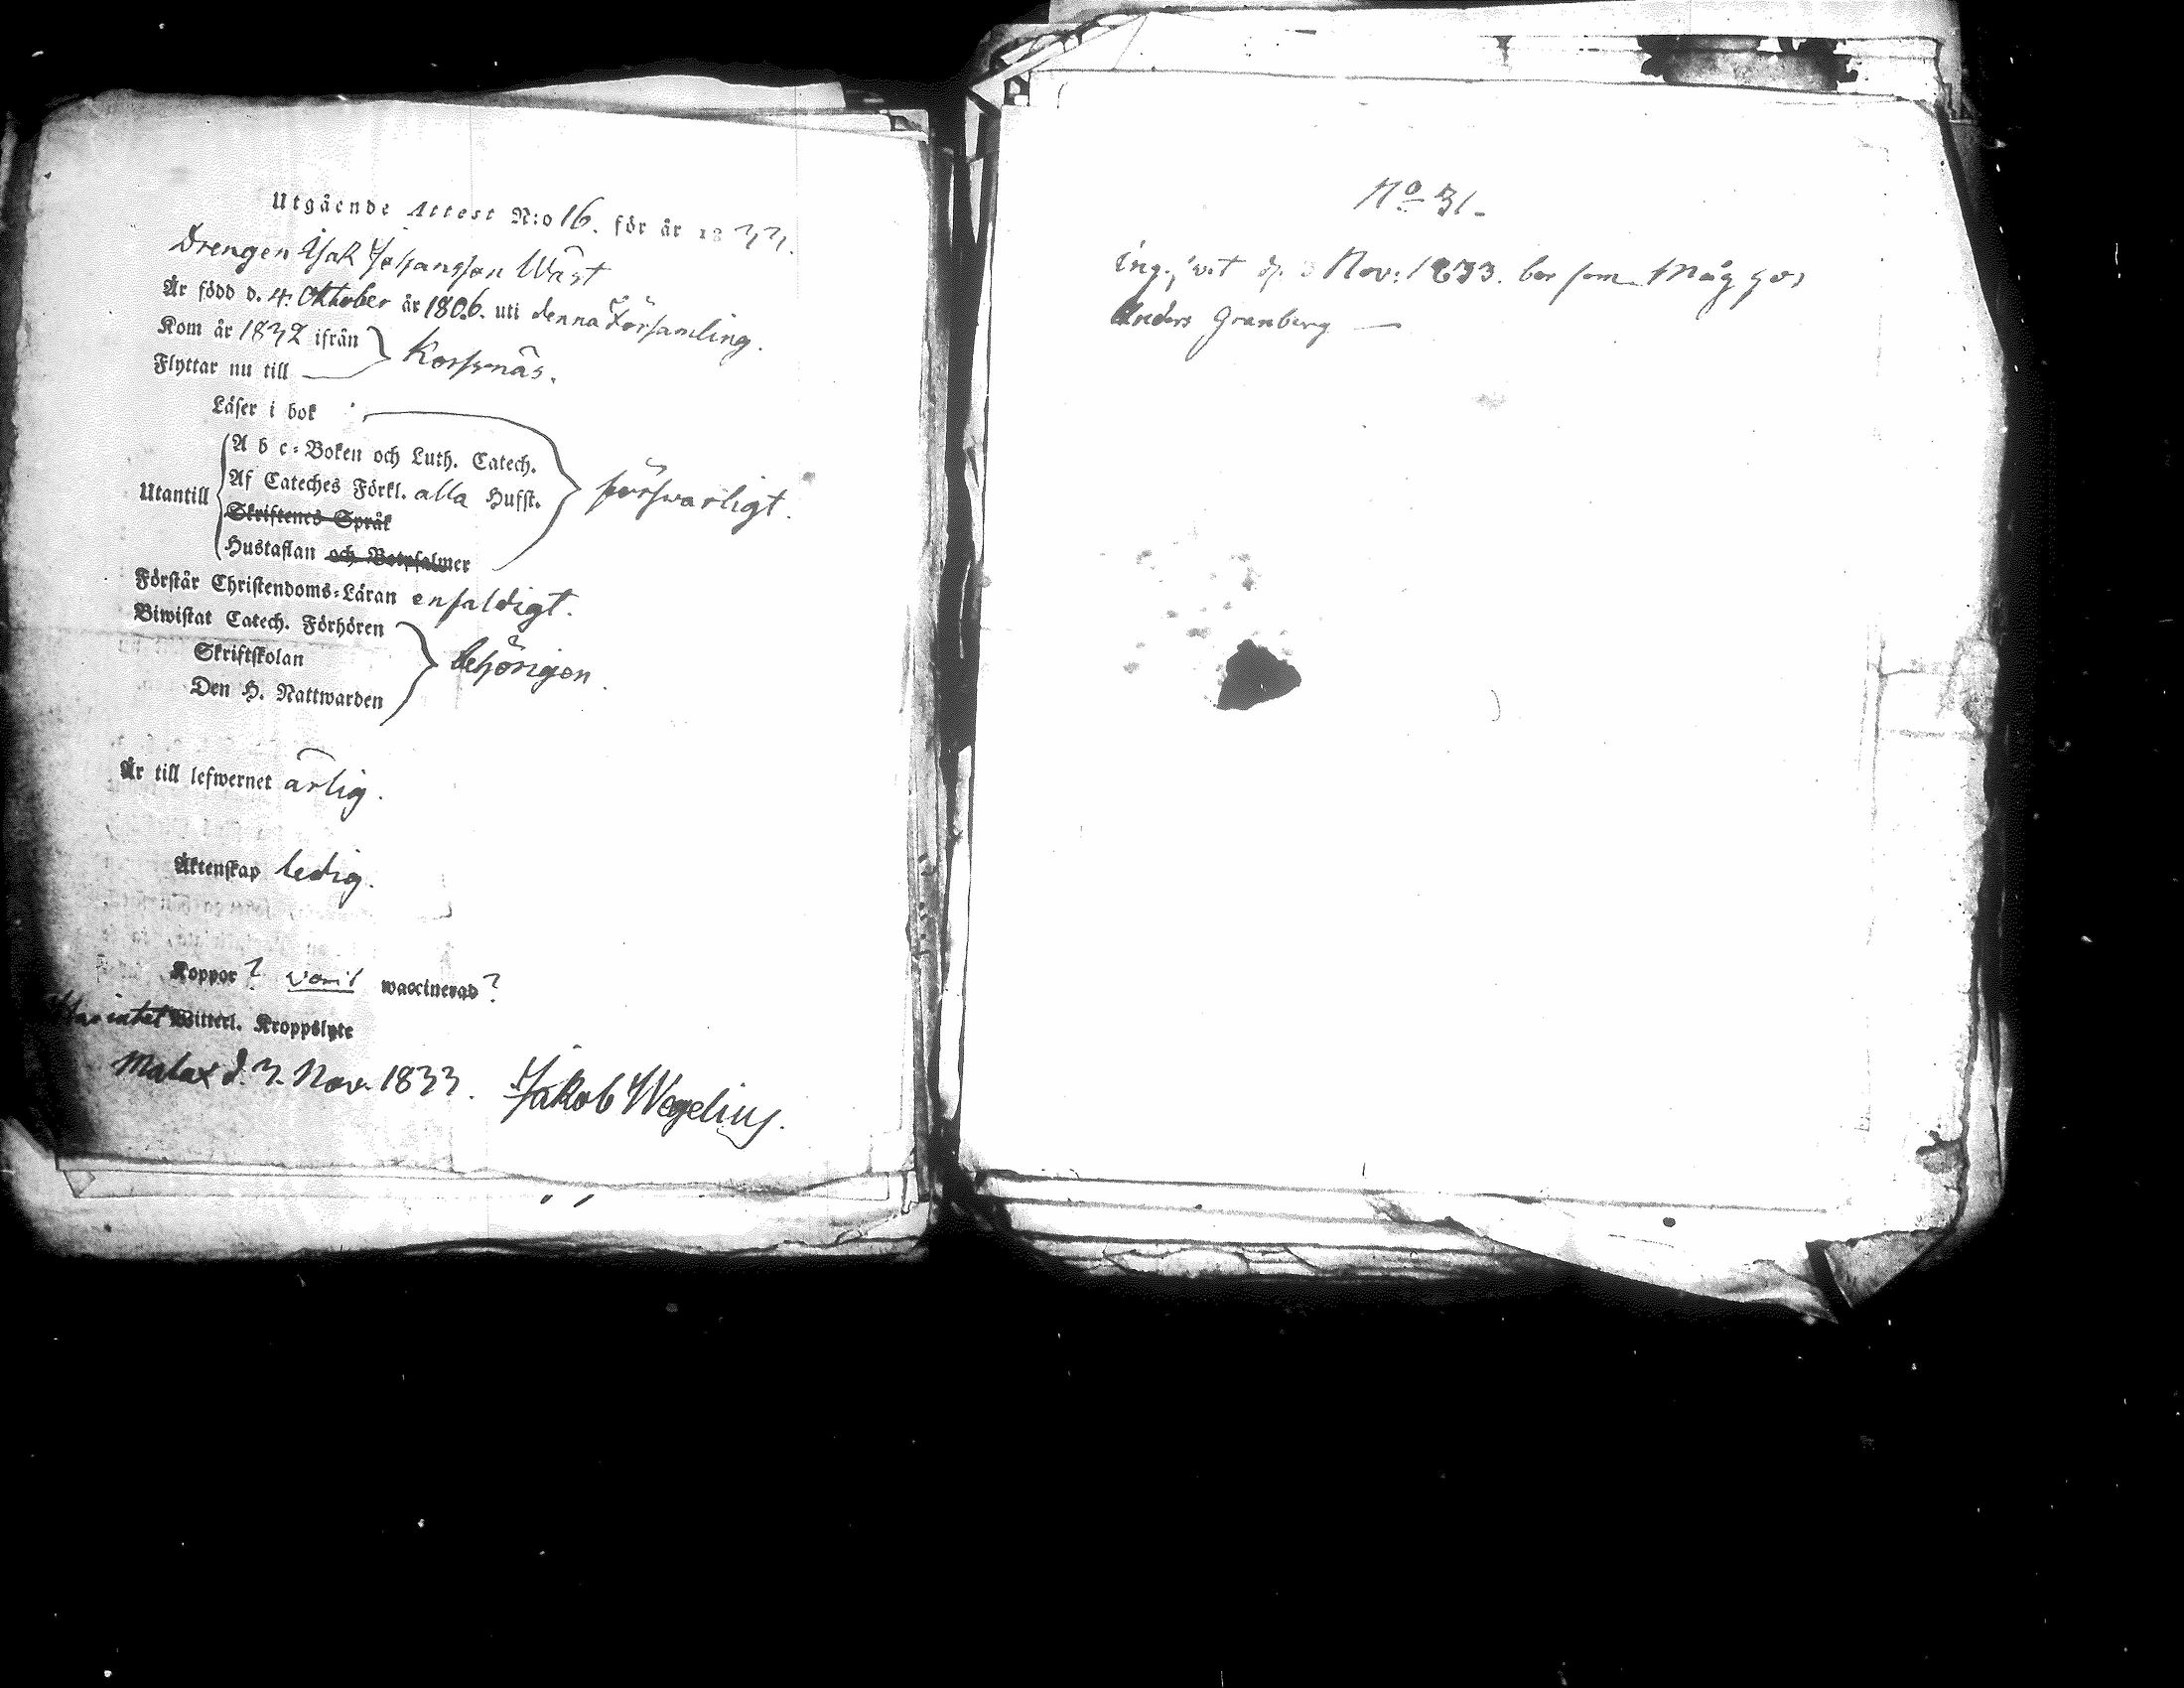 Utgående Attest N:o 16. för år 1833.
Drengen Isak Johansson Wäst
Är född d. 4. Oktober år 1806. uti denna Församling.
Kom år 1832 ifrån
Flyttar nu till
Korssnäs.
Läser i bok
Utantill
A b c-Boken och Luth. Catech.
Af Cateches Förkl. alla Hufst.
Skriftenes Språk
Hustaflan och Botpsalmer
försvarligt.
Förstår Christendoms-Läran enfaldigt.
Biwistat Catech. Förhören
Skriftskolan
Den H. Nattwarden
behörigen.
Är till lefwernet ärlig.
Äktenskap ledig.
Koppor? varit waccinerad?
Har intet Witterl. Kroppslyte
Malax d. 3. Nov. 1833. Jakob Wegelius.
No 31.
Nov: 1833. bor som Måg hos
Anders Granberg